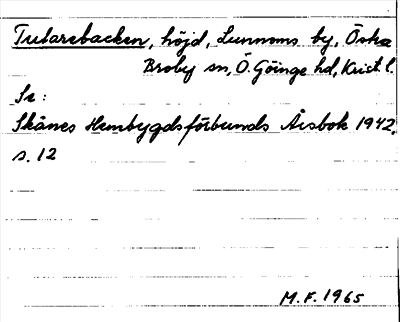 Tutarebacken, höjd, Lunnoms by, Östra
Broby sn, Ö. Göinge hd, Krist l.
Se:
Skånes Hembygdsförbunds Årsbok 1942,
s. 12
M.F. 1965